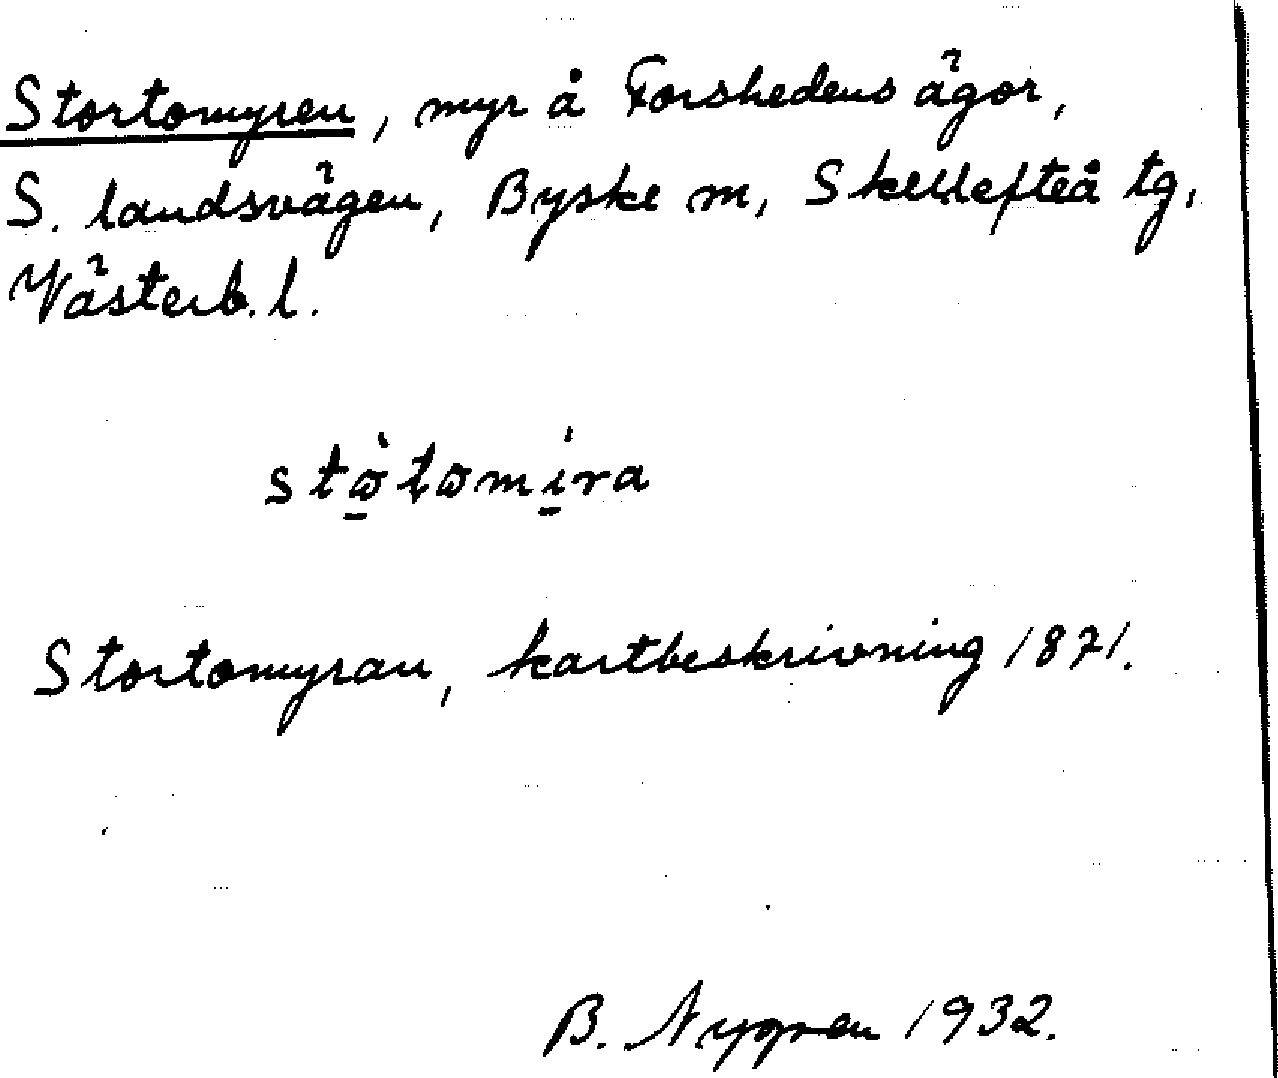 Stortomyren, myr å Forshedens ägor,
S. landsvägen, Byske m, Skellefteå tg,
Västerb. l.
stò̠tomi̠ra
Stortomyran, kartbeskrivning 1871.
B. Nygren 1932.